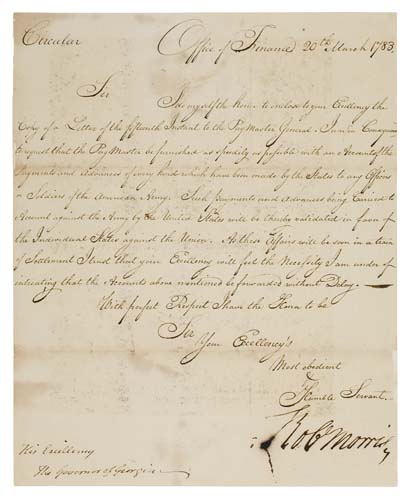 Circular
Office of Finance 20th March 1783.
Sir
I do myself the Honor to enclose to your Excellency the
Copy of a Letter of the fifteenth Instant to the Pay Master General. I am in Consequence
to request that the Pay Master be furnished as speedily as possible with an Account of the
Payments and Advances of every kind which have been made by the States to any Officers
or Soldiers of the American Army. Such payments and Advances being Carried to
Account against the Army by the United States will be thereby validated in favor of
the Individual States against the Union. As these Affairs will be soon in a train
of Settlement I trust that your Excellency will feel the Necessity I am under of
intreating that the Accounts above mentioned be forwarded without Delay.
With perfect Respect I have the Honor to be
Sir
Your Excellency's
Most obedient
&
Humble Servant
Rob Morris
His Excellency
The Governor of Georgia